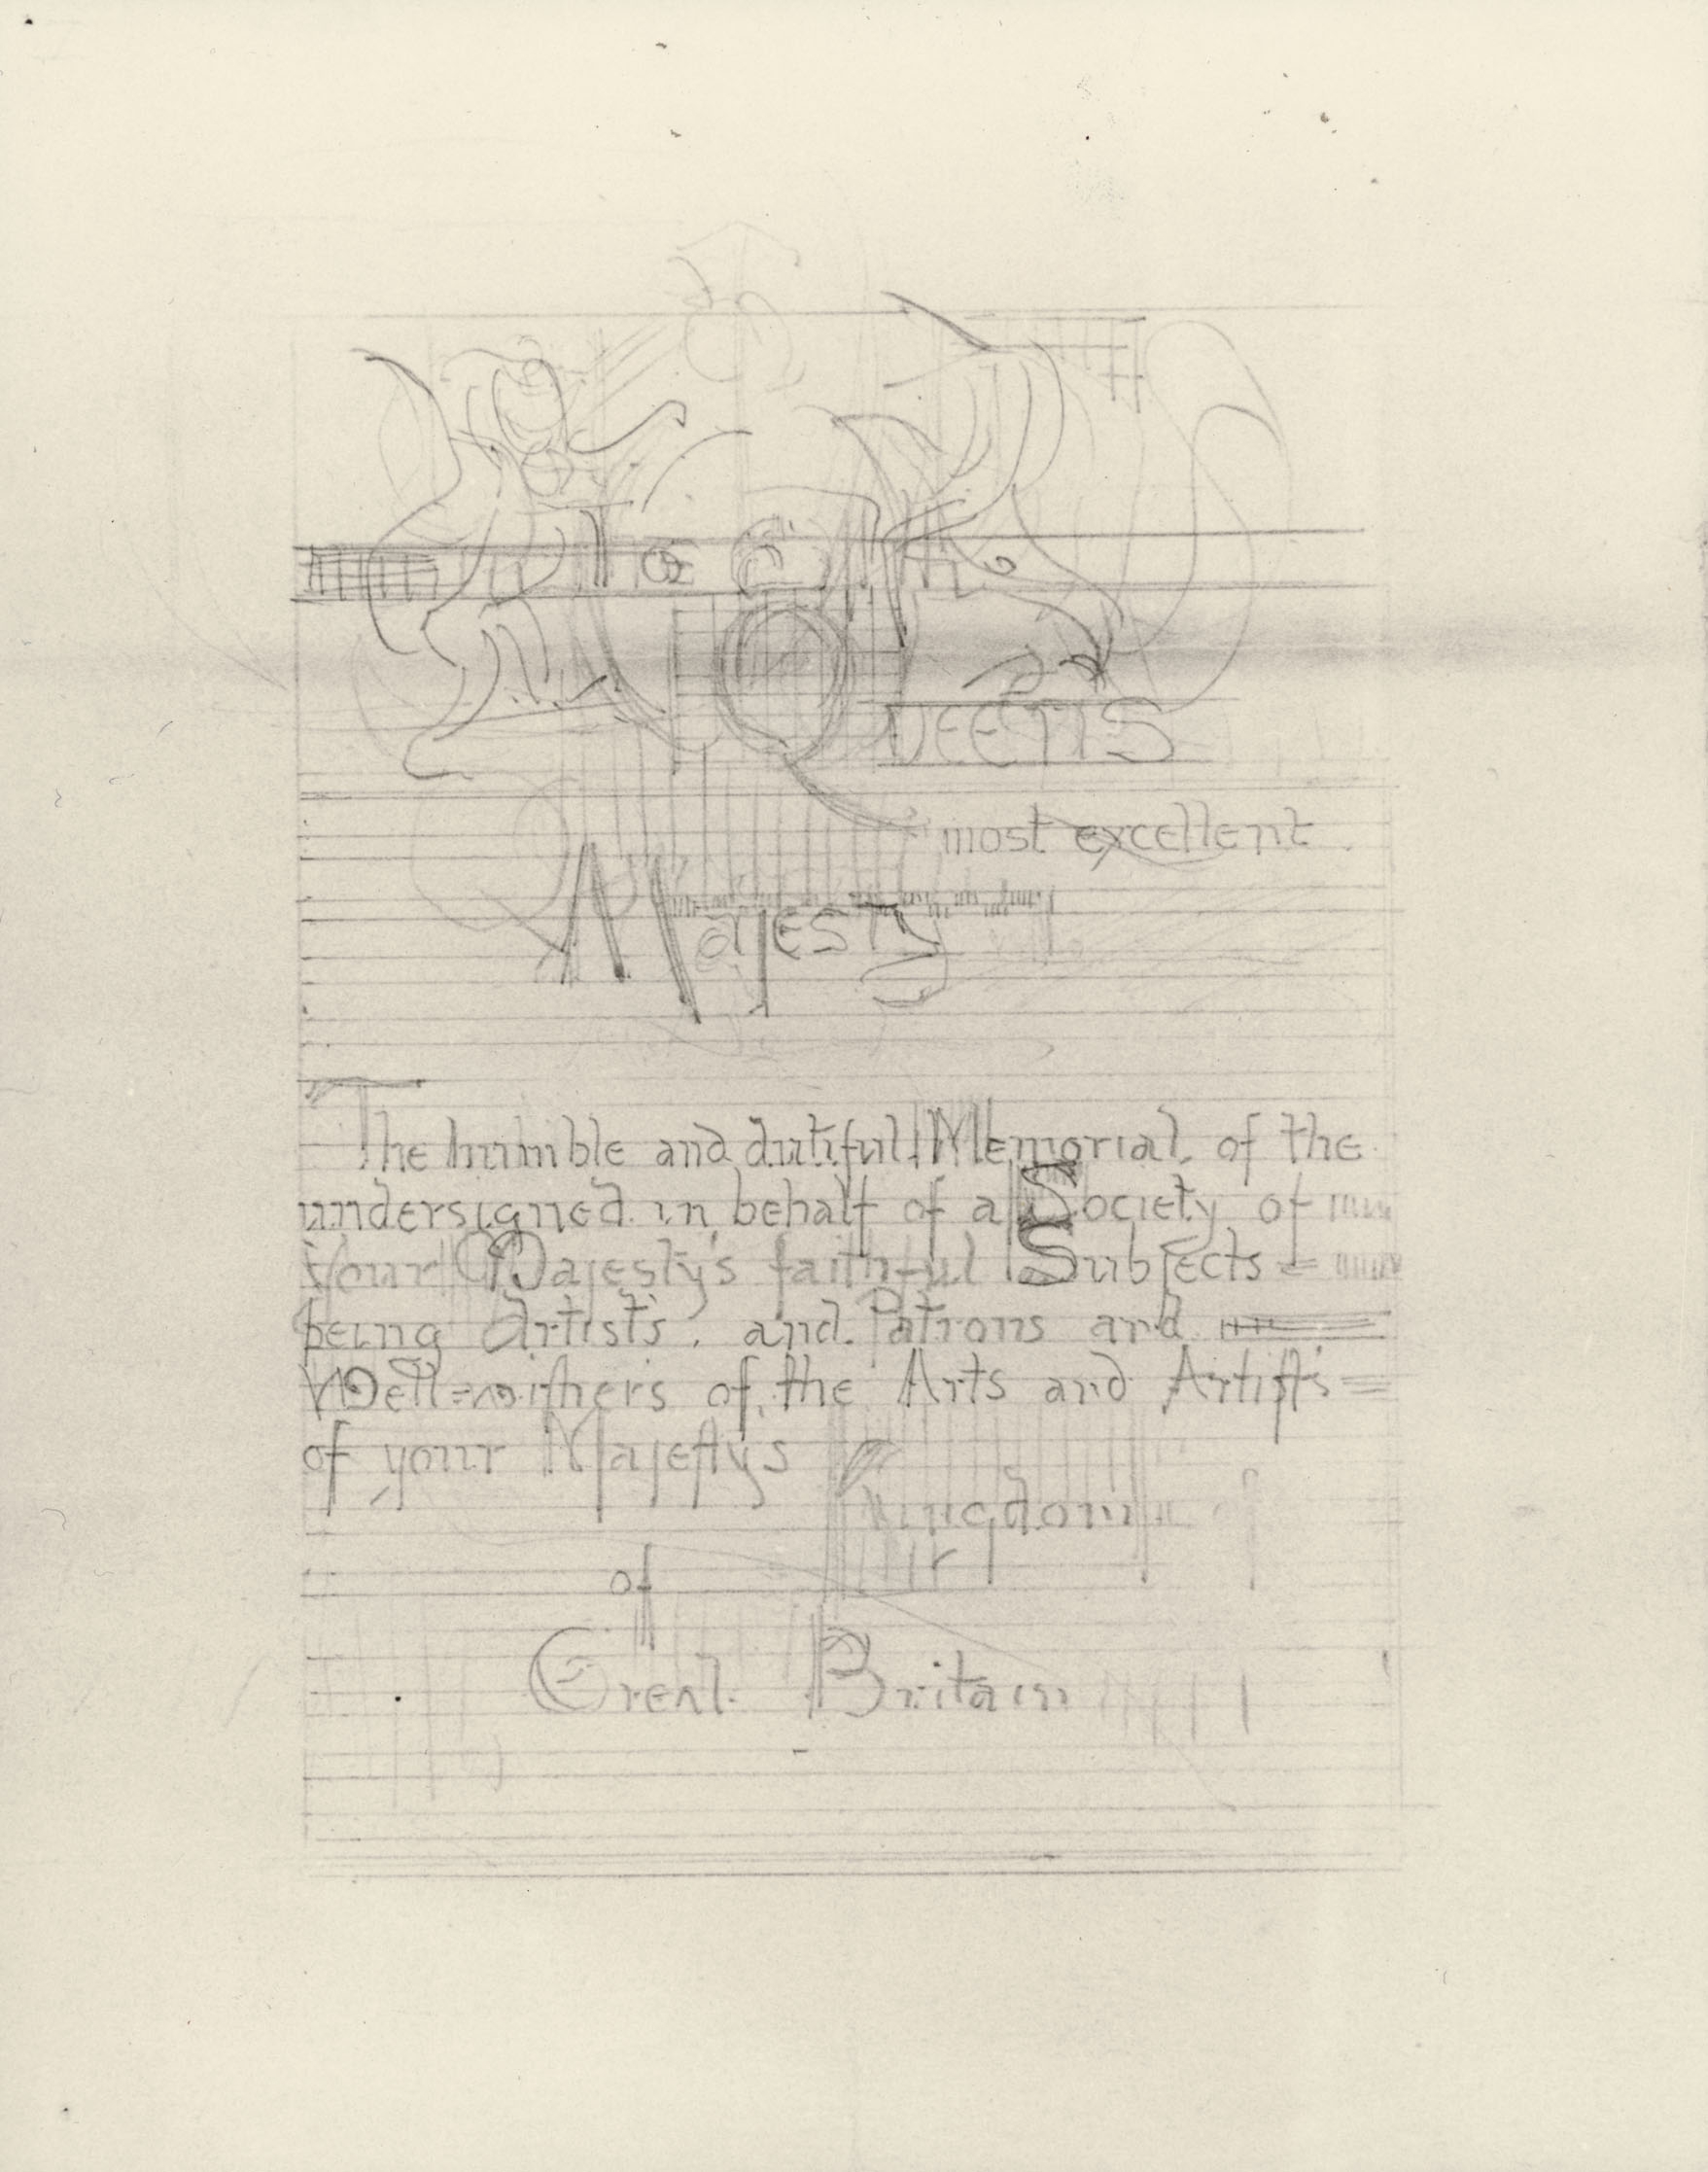 VEEn'S
most excellent
Majesty
The humble and dutiful Memorial of the
undersigned in behalf of a Society of
Your Majesty's faithful Subjects
being Artists, and Patrons and
Well=wiſhers of the Arts and Artiſts
of your Majeſty's
Kingdom of
of
Great Britain